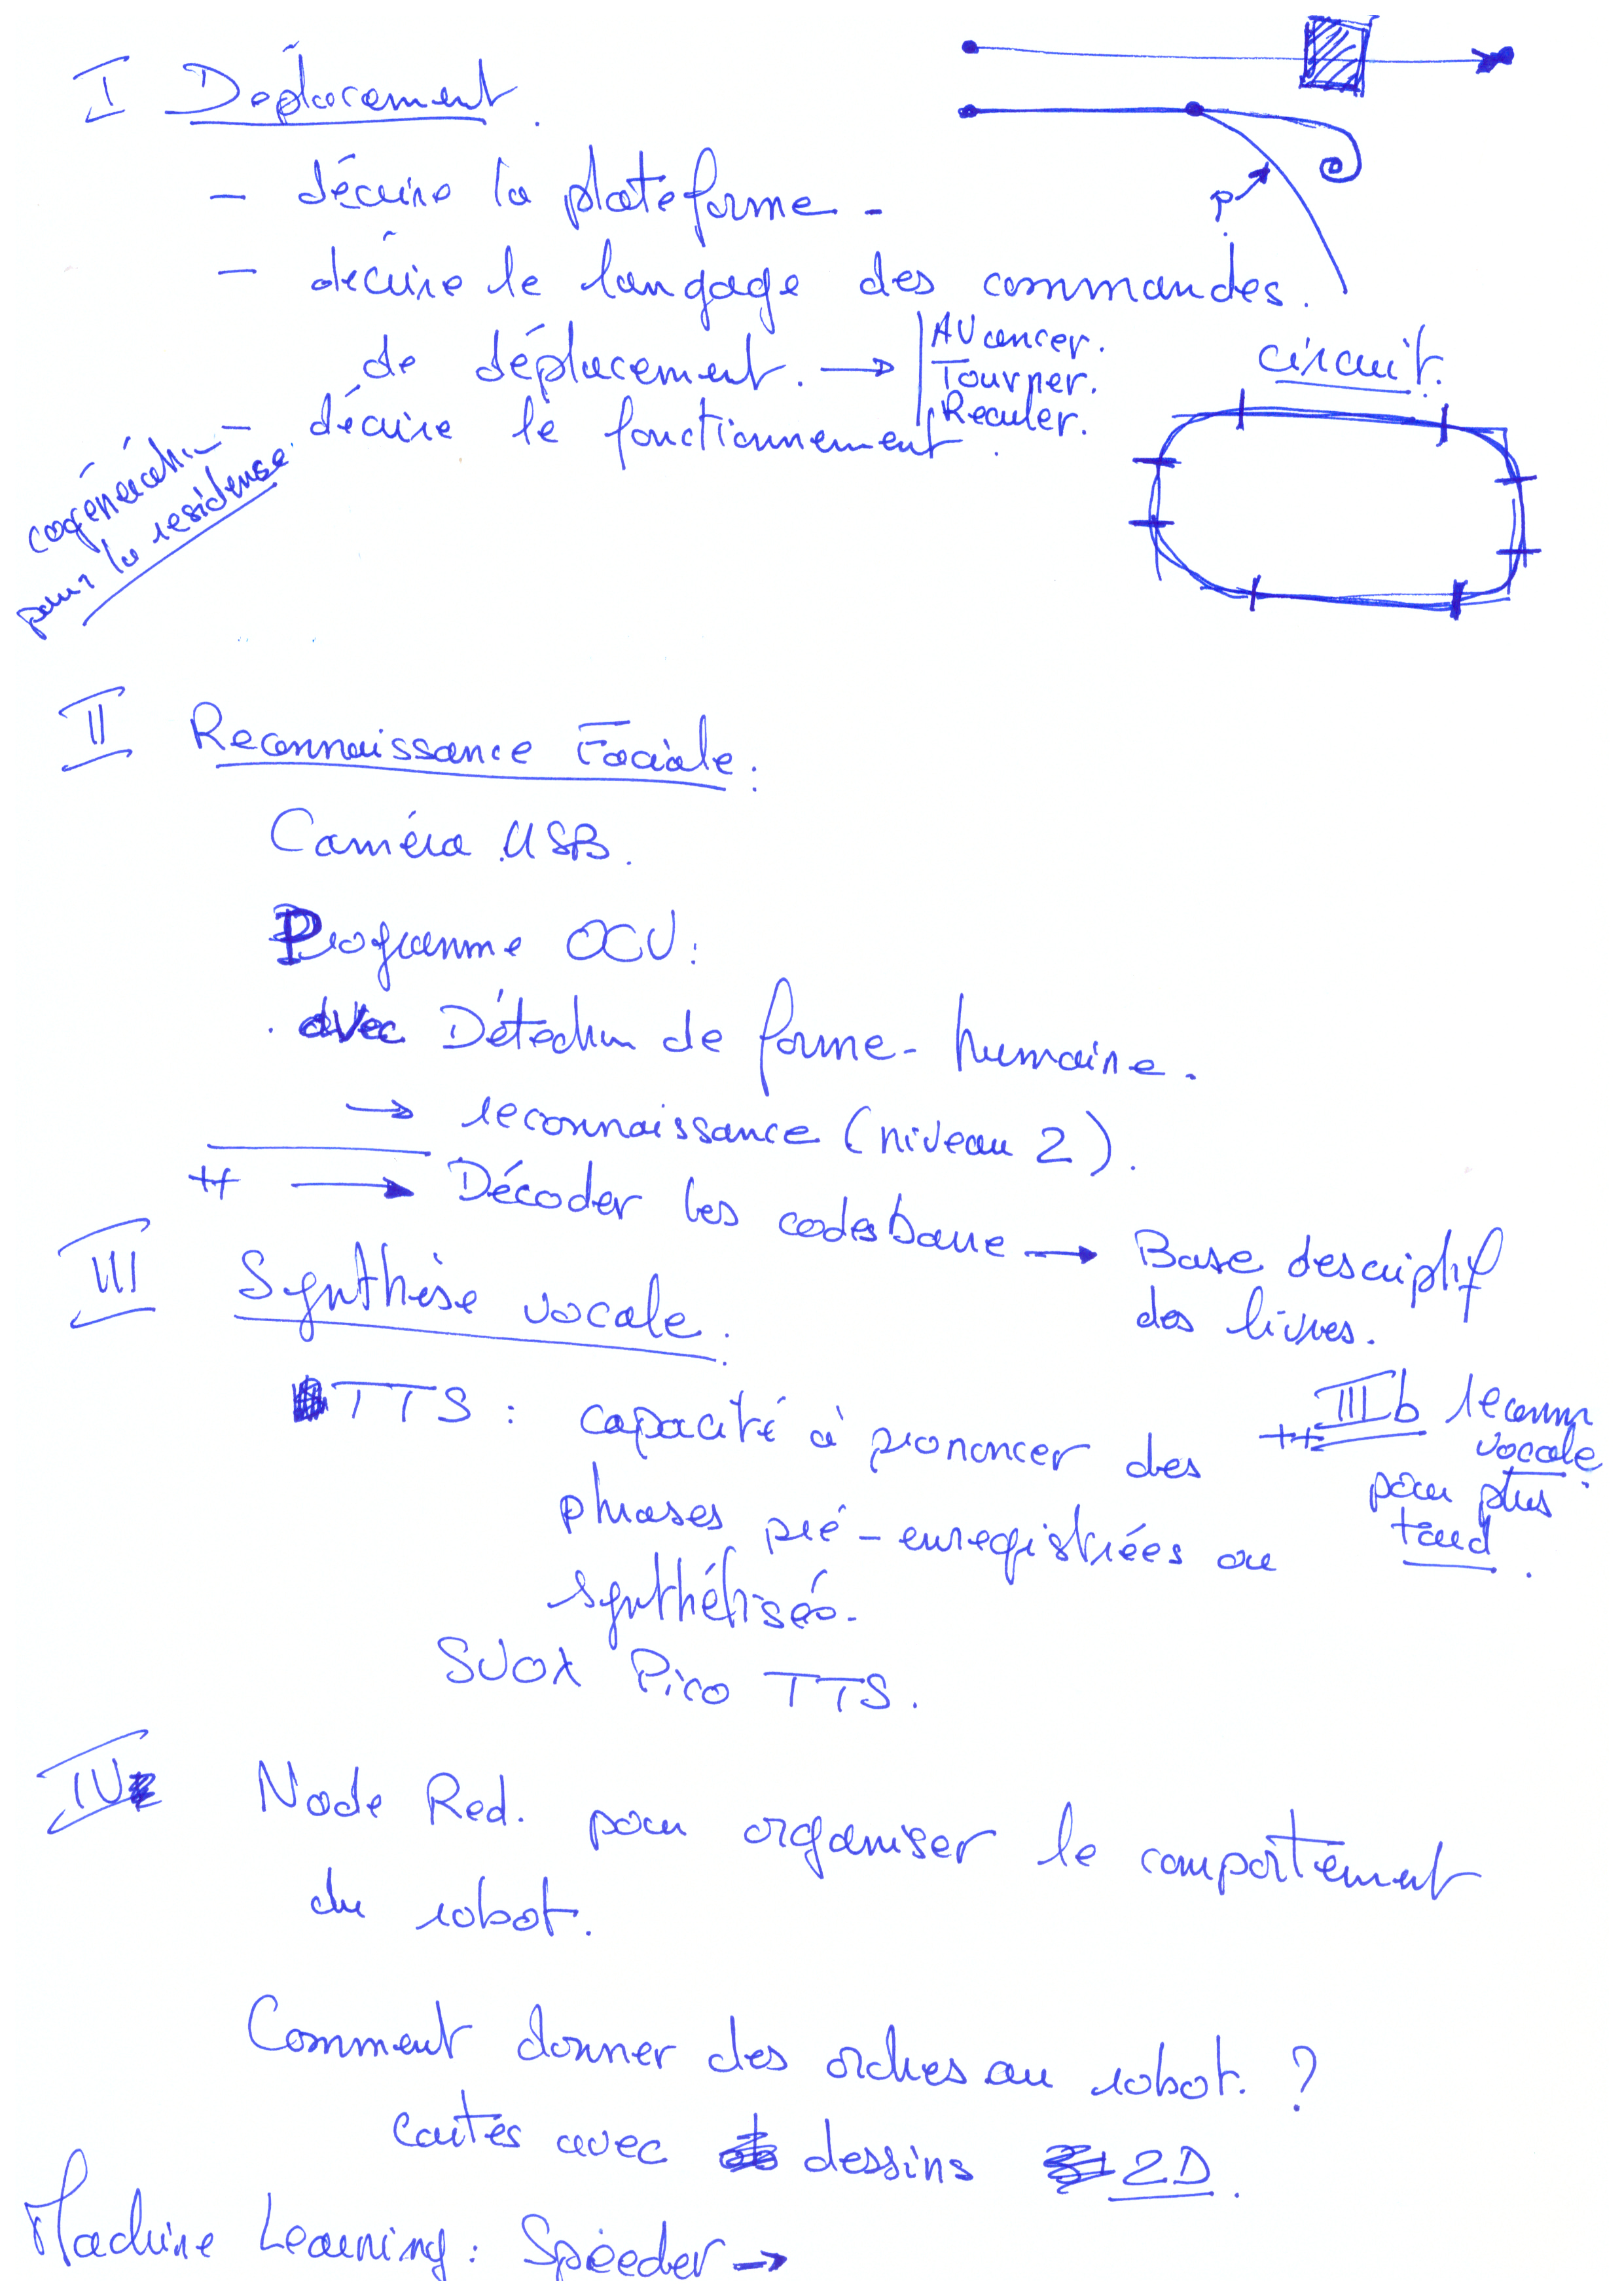 I Déplacement.
- décrire la plateforme -
- décrire le langage des commandes.
de déplacement. → | AVancer.
Tourner.
Reculer.
- décrire le fonctionnement.
P
circuit.
pour la residense
II Reconnaissance Faciale :
Caméra USB.
Programme OCV :
. avec Détection de forme - humaine.
→ reconnaissance (niveau 2).
++ → Décoder les codes barre → Base descriptif
des livres.
III Synthèse vocale.
TTS : capacité à prononcer des
phrases pré-enregistrées ou
synthétisés.
SVOX Pico TTS.
++ III b reconn
vocale
pour plus
tard.
IV Node Red. pour organiser le comportement
du robot.
Comment donner des ordres au robot. ?
cartes avec dessins 2D.
Machine Learning : Speeder →